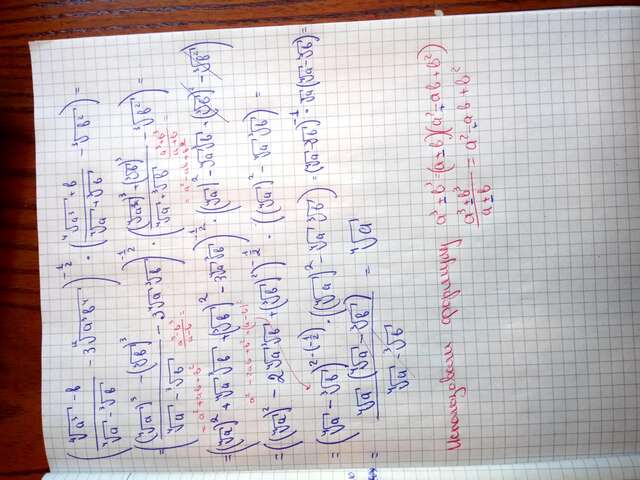 (\frac{\sqrt[4]{a^3} - b}{\sqrt[4]{a} - \sqrt[3]{b}} - 3\sqrt[12]{a^3b^4})^{-\frac{1}{2}} · (\frac{\sqrt[4]{a^3} + b}{\sqrt[4]{a} + \sqrt[3]{b}} - \sqrt[3]{b^2}) =
= (\frac{(\sqrt[4]{a})^3 - (\sqrt[3]{b})^3}{\sqrt[4]{a} - \sqrt[3]{b}} - 3\sqrt[4]{a}\sqrt[3]{b})^{-\frac{1}{2}} · (\frac{(\sqrt[4]{a})^3 + (\sqrt[3]{b})^3}{\sqrt[4]{a} + \sqrt[3]{b}} - \sqrt[3]{b^2}) =
\frac{a^3 - b^3}{a - b} = a^2 + ab + b^2
\frac{a^3 + b^3}{a + b} = a^2 - ab + b^2
= ((\sqrt[4]{a})^2 + \sqrt[4]{a}\sqrt[3]{b} + (\sqrt[3]{b})^2 - 3\sqrt[4]{a}\sqrt[3]{b})^{-\frac{1}{2}} · ((\sqrt[4]{a})^2 - \sqrt[4]{a}\sqrt[3]{b} + (\sqrt[3]{b})^2 - \sqrt[3]{b^2})
a^2 - 2ab + b^2 = (a - b)^2
= ((\sqrt[4]{a})^2 - 2\sqrt[4]{a}\sqrt[3]{b} + (\sqrt[3]{b})^2)^{-\frac{1}{2}} · ((\sqrt[4]{a})^2 - \sqrt[4]{a}\sqrt[3]{b}) =
= (\sqrt[4]{a} - \sqrt[3]{b})^{2·(-\frac{1}{2})} · ((\sqrt[4]{a})^2 - \sqrt[4]{a}\sqrt[3]{b}) = (\sqrt[4]{a} - \sqrt[3]{b})^{-1} · \sqrt[4]{a}(\sqrt[4]{a} - \sqrt[3]{b}) =
= \frac{\sqrt[4]{a}(\sqrt[4]{a} - \sqrt[3]{b})}{\sqrt[4]{a} - \sqrt[3]{b}} = \sqrt[4]{a}
Использовали формулу a^3 ± b^3 = (a ± b)(a^2 ∓ ab + b^2)
\frac{a^3 ± b^3}{a ± b} = a^2 ∓ ab + b^2